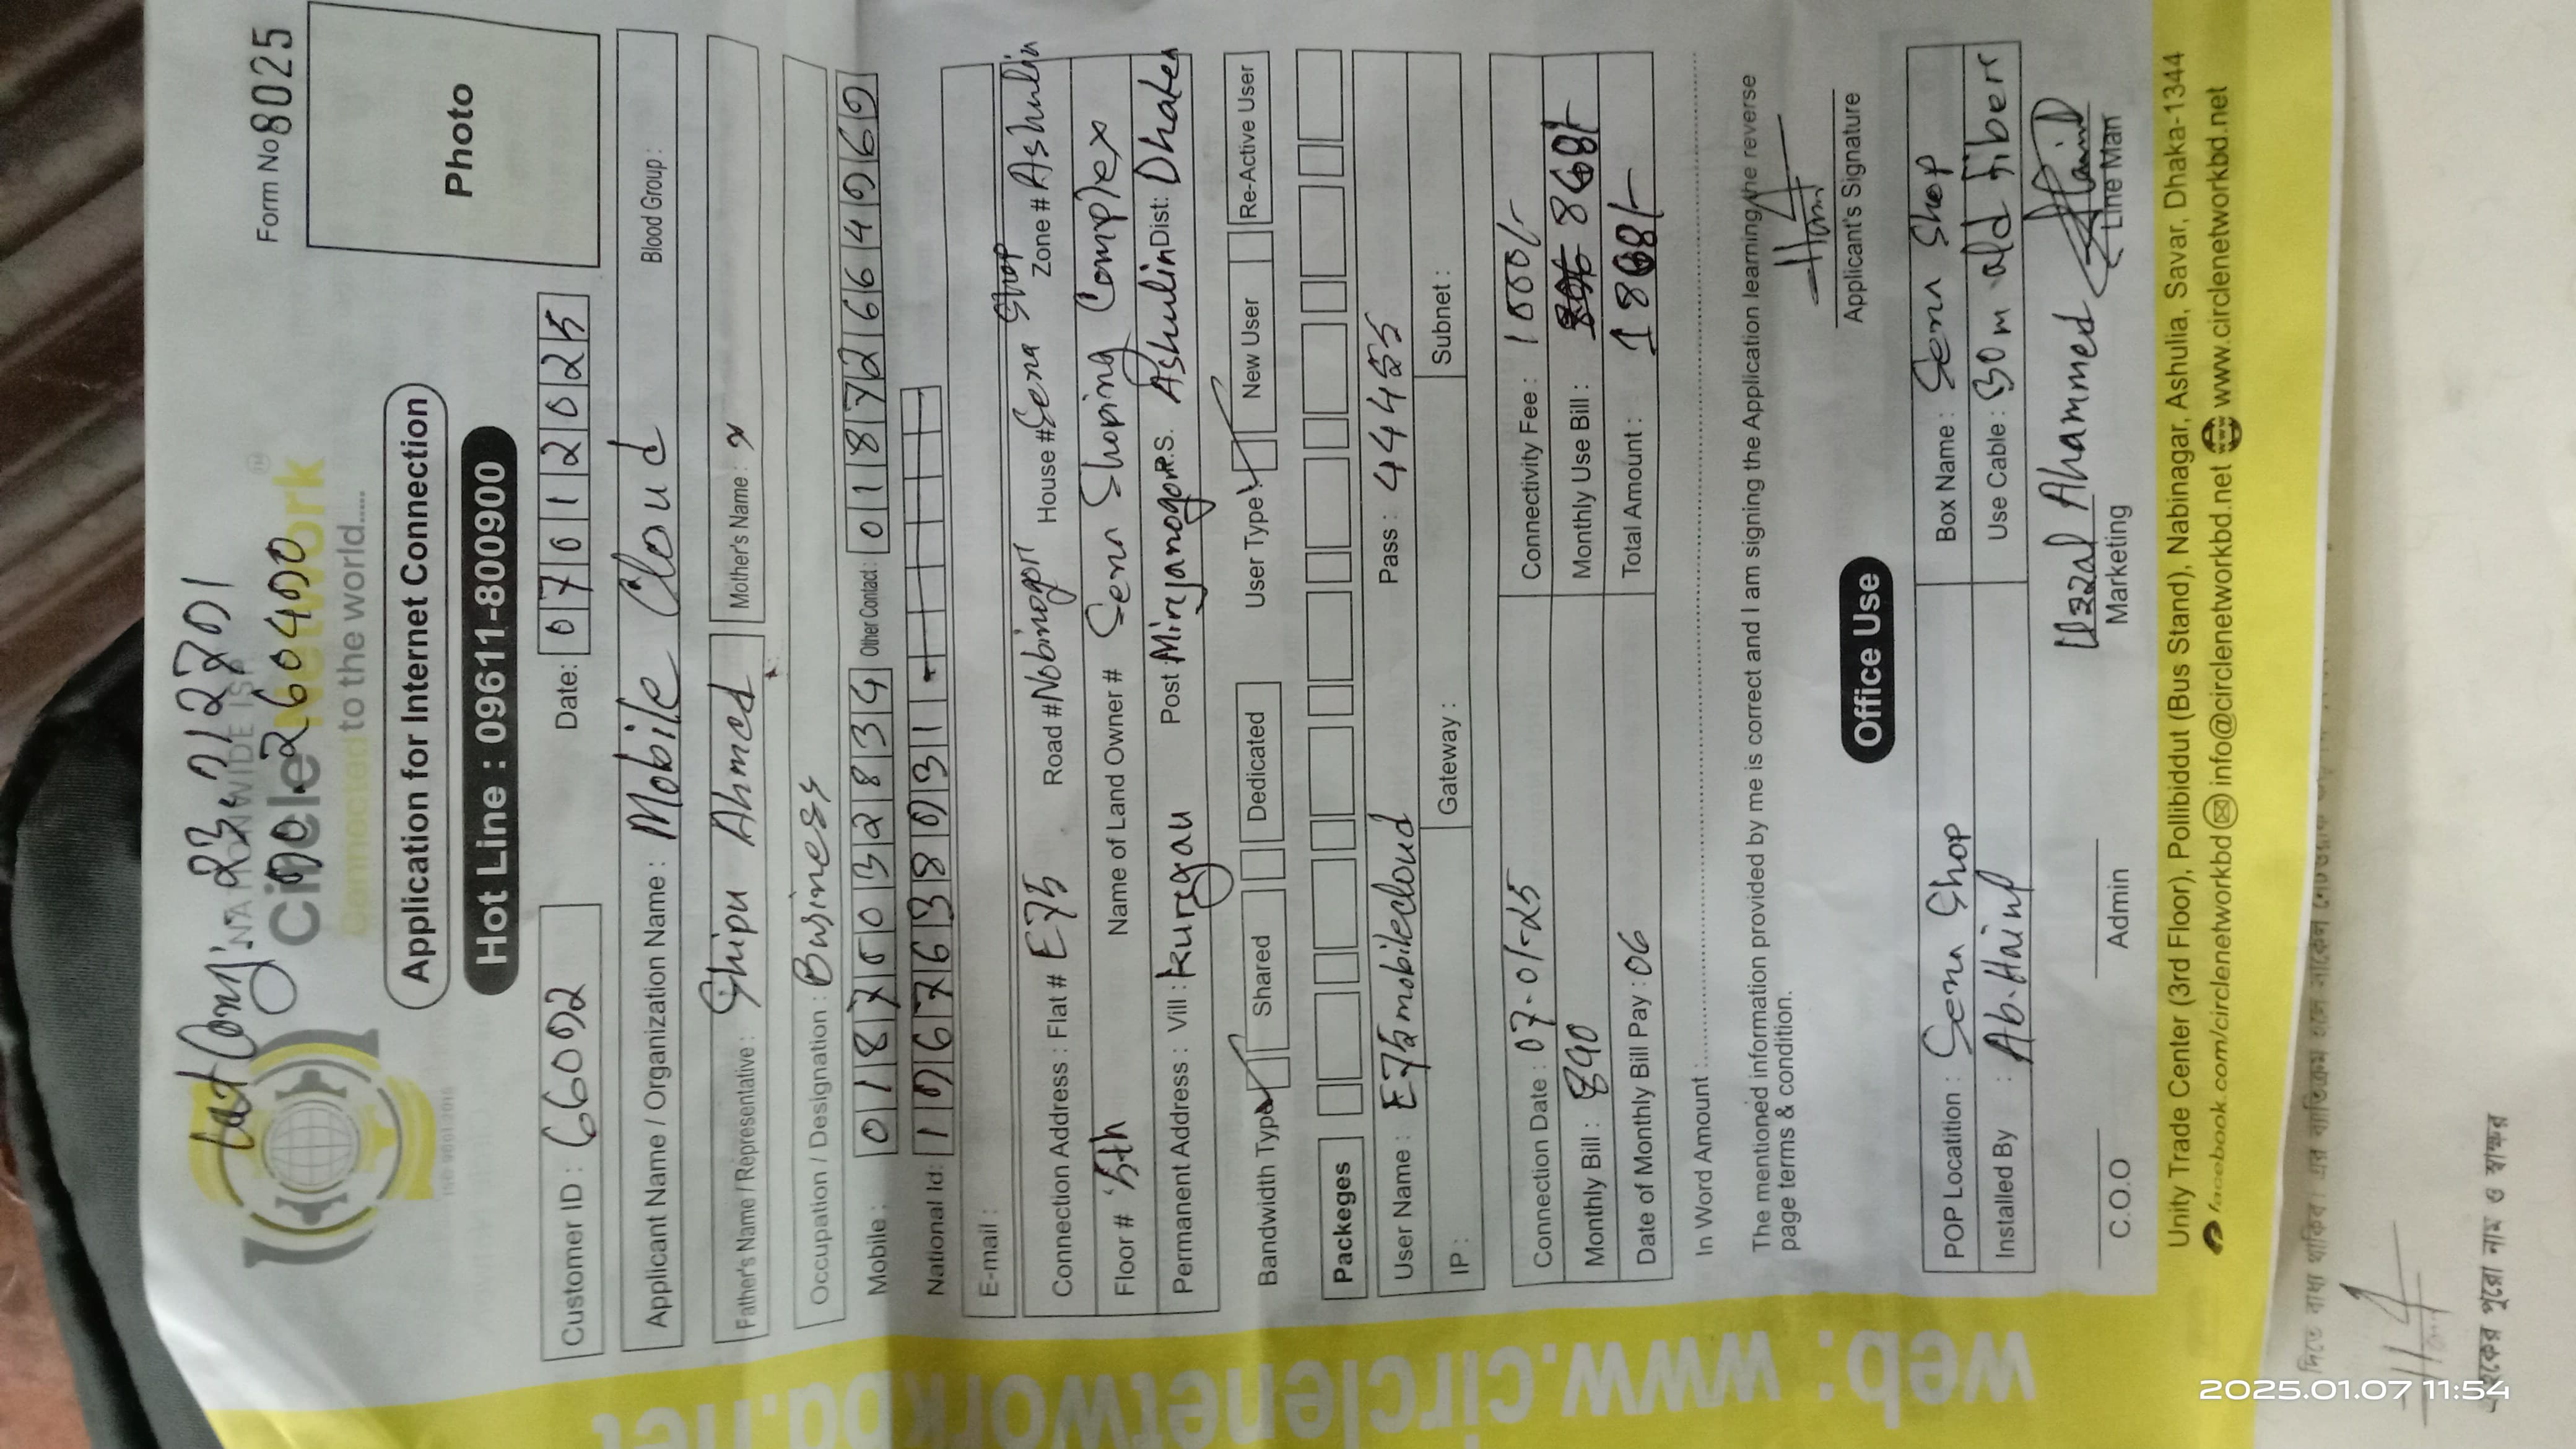 Lat Long: 23.912701
90.260400
Form No 8025
NATIONWIDE ISP
Circle Network
Connected to the world.....
Photo
Application for Internet Connection
Hot Line : 09611-800900
Customer ID : 66092 Date: 07012025
Applicant Name / Organization Name : Mobile Cloud Blood Group :
Father's Name / Representative : Shipu Ahmed Mother's Name : x
Occupation / Designation : Business
Mobile : 01870032834 Other Contact : 01872664969
National Id: 1967638931
E-mail :
Connection Address : Flat # E75 Road # Nobinogor House # Sena Shop Zone # Ashulia
Floor # 5th Name of Land Owner # Sena Shoping Complex
Permanent Address : Vill : kurgau Post Mirjanogor P.S. Ashulia Dist: Dhaka
Bandwidth Type Shared Dedicated User Type: New User Re-Active User
Packeges
User Name : E75mobilecloud Pass : 444555
IP : Gateway : Subnet :
Connection Date : 07-01-25 Connectivity Fee : 1000/-
Monthly Bill : 890 Monthly Use Bill : 868/-
Date of Monthly Bill Pay : 06 Total Amount : 1868/-
In Word Amount :
The mentioned information provided by me is correct and I am signing the Application learning the reverse
page terms & condition.
Applicant's Signature
Office Use
POP Locatition : Sena Shop Box Name : Sena Shop
Installed By : Ab. Hainf Use Cable : 30m old fiber
Uzzal Ahammed
C.O.O Admin Marketing Line Man
Unity Trade Center (3rd Floor), Pollibiddut (Bus Stand), Nabinagar, Ashulia, Savar, Dhaka-1344
facebook.com/circlenetworkbd info@circlenetworkbd.net www.circlenetworkbd.net
web: www.circlenetworkbd.net
পুরো নাম ও স্বাক্ষর
2025.01.07 11:54